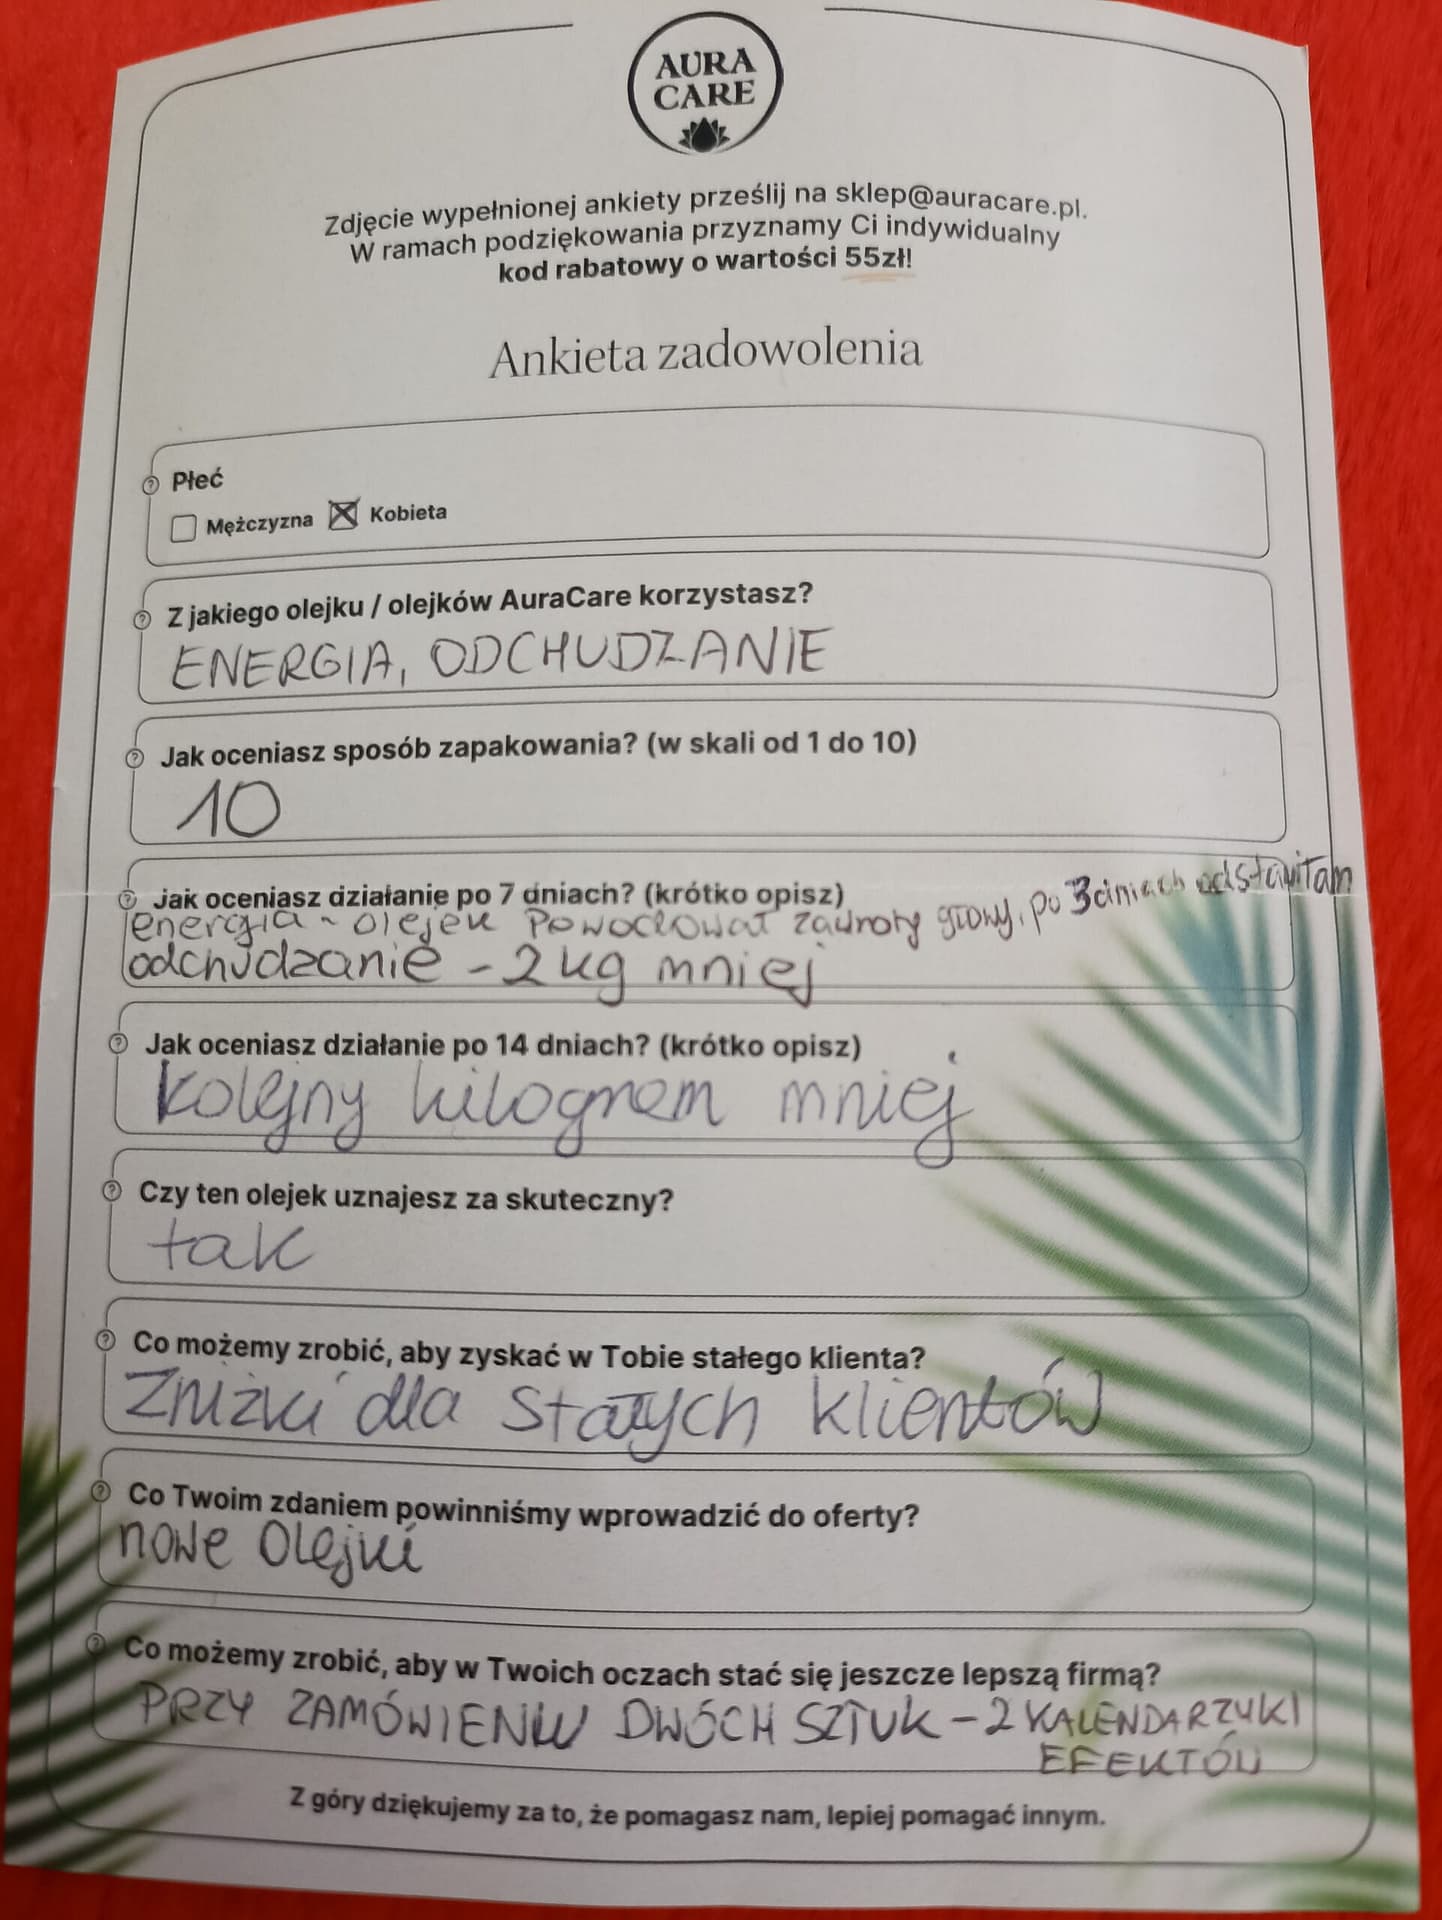 AURA
CARE
Zdjęcie wypełnionej ankiety prześlij na sklep@auracare.pl.
W ramach podziękowania przyznamy Ci indywidualny
kod rabatowy o wartości 55zł!
Ankieta zadowolenia
Płeć
Mężczyzna Kobieta
Z jakiego olejku / olejków AuraCare korzystasz?
ENERGIA, ODCHUDZANIE
Jak oceniasz sposób zapakowania? (w skali od 1 do 10)
10
Jak oceniasz działanie po 7 dniach? (krótko opisz)
energia - olejek powodował zawroty głowy, po 3 dniach odstawiłam
odchudzanie - 2 kg mniej
Jak oceniasz działanie po 14 dniach? (krótko opisz)
kolejny kilogram mniej
Czy ten olejek uznajesz za skuteczny?
tak
Co możemy zrobić, aby zyskać w Tobie stałego klienta?
Zniżki dla stałych klientów
Co Twoim zdaniem powinniśmy wprowadzić do oferty?
nowe olejki
Co możemy zrobić, aby w Twoich oczach stać się jeszcze lepszą firmą?
PRZY ZAMÓWIENIU DWÓCH SZTUK - 2 KALENDARZYKI
EFEKTÓW
Z góry dziękujemy za to, że pomagasz nam, lepiej pomagać innym.